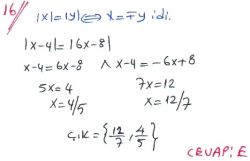 16) |x|=|y| ⟺ x=∓y idi.
|x-4|=|6x-8|
x-4=6x-8 ∧ x-4=-6x+8
5x=4 7x=12
x=4/5 x=12/7
Ç.K={12/7, 4/5}
CEVAP: E